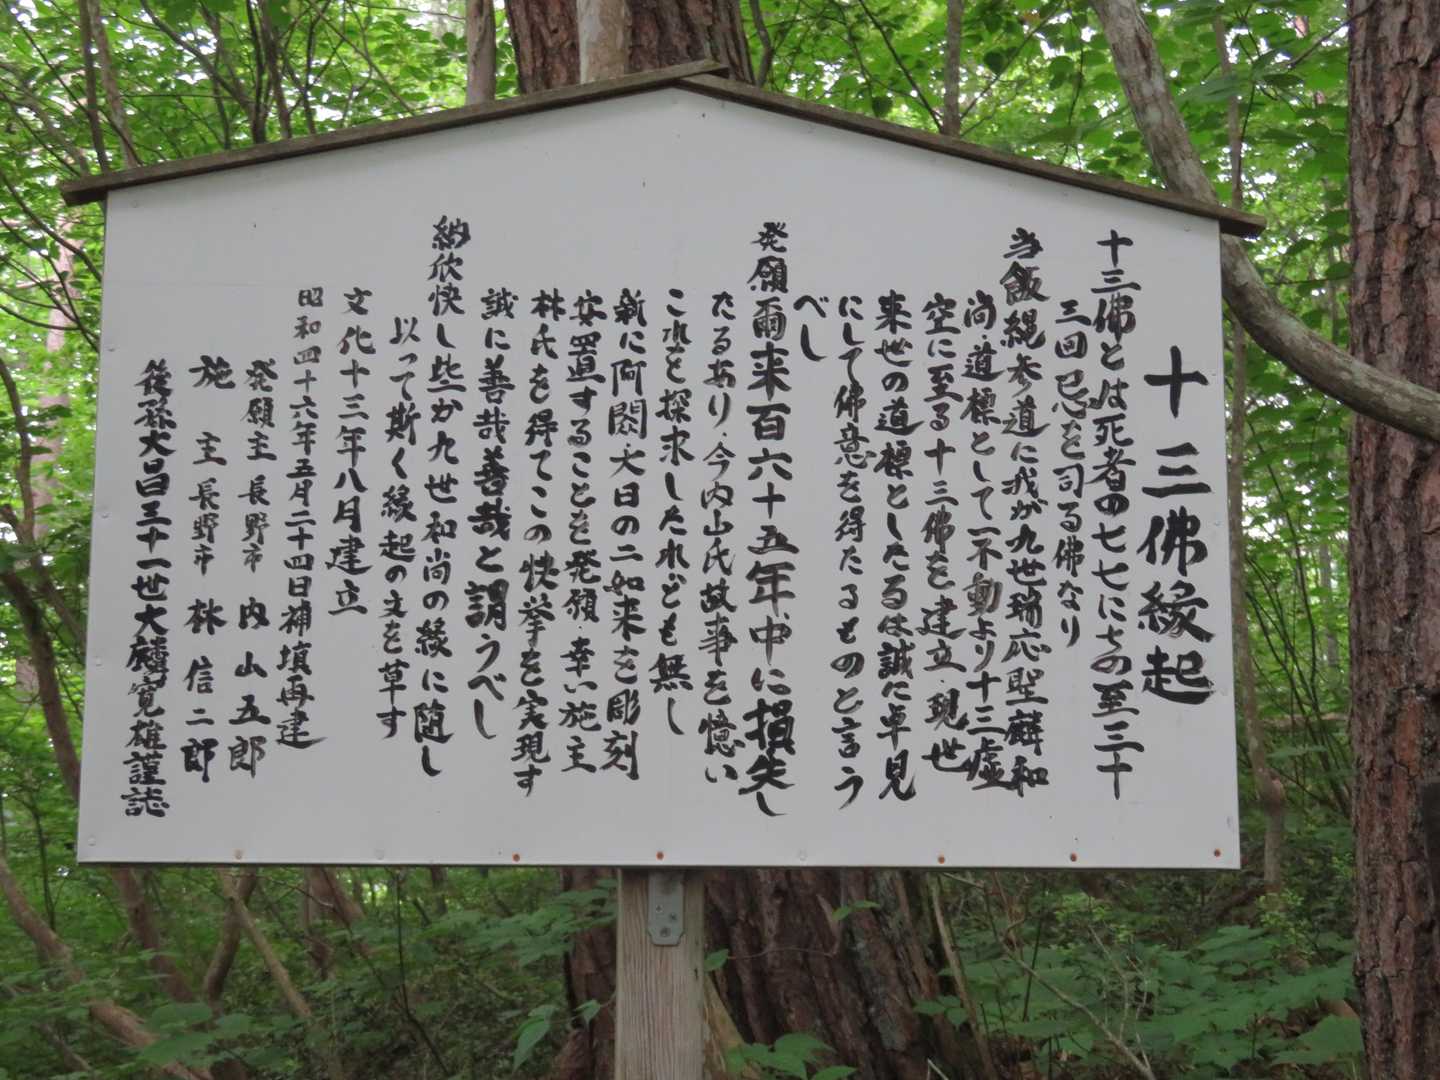 十三佛縁起
十三佛とは死者の七七にちの至三十
三回忌を司る佛なり
当飯縄参道に我が九世瑞応聖麟和
尚・道標として一不動より十三虚
空に至る十三佛を建立・現世
来世の道標としたるは誠に卓見
にして佛意を得たるものと言う
べし
発願爾来百六十五年、中に損失し
たるあり・今内山氏故事を憶い
これを探求したれども無し
新に阿閦・大日の二如来を彫刻
安置することを発願・幸い施主
林氏を得てこの快挙を実現す
誠に善哉善哉と謂うべし
納欣快し些か九世和尚の縁に随し
以って斯く縁起の文を草す
文化十三年八月建立
昭和四十六年五月二十四日補填再建
発願主 長野市 内山五郎
施主 長野市 林信二郎
後孫大昌三十一世大麟寛雄謹誌